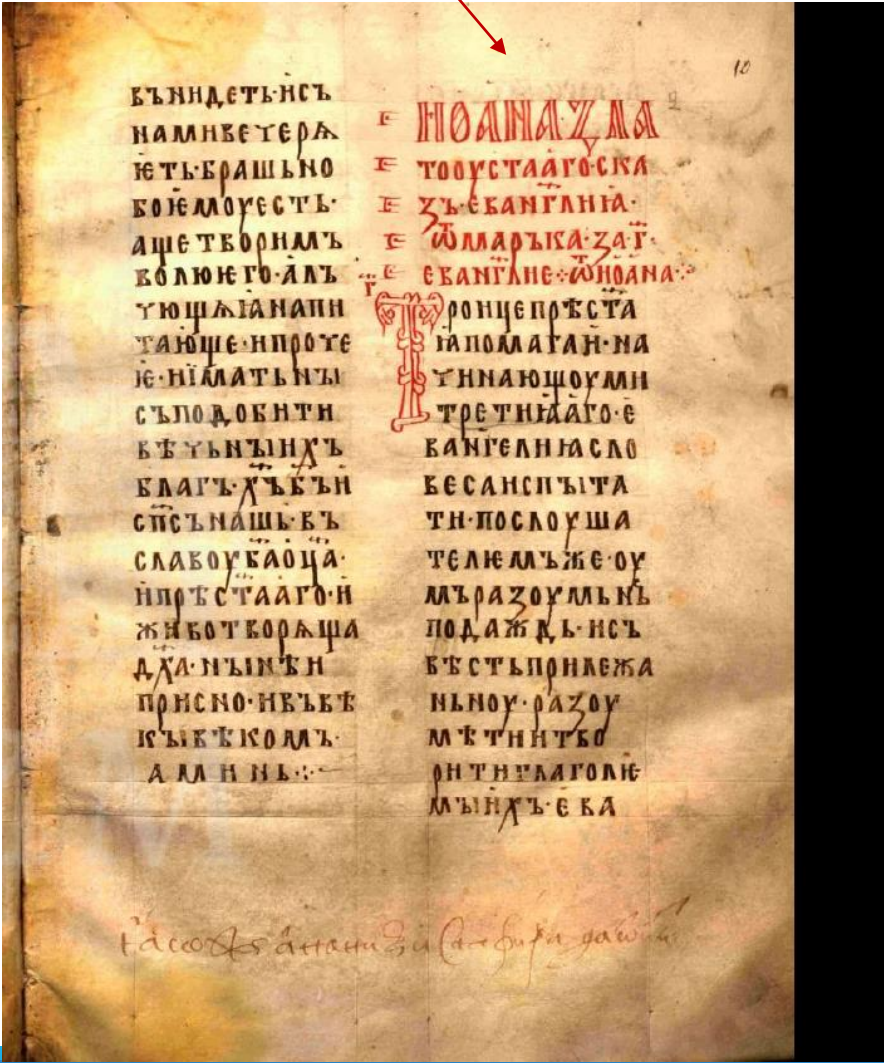 вънидеть·исъ
намивечерѧ
ѥть·брашьно
боѥмоуѥсть·
ащетворимъ
волюѥго·алъ
чющѧꙗнапи
тающе·ипоче
ѥ·ні́матьны
съподобити
вѣчьныихъ
благъ·х҃ъб҃ъи
сп҃сънашь·въ
славоуб҃аоц҃а·
ипрѣст҃ааго·и
животворѧща
д҃ха·нынѣи
присно·ивъвѣ
кывѣкомъ·
аминь·:·
10
иоаназла
тооустааго·ска
зъ·еванг҃лиꙗ·
ѿмарька·за·г҃·
еванг҃лие·:·ѿиоана·:·
Троицепрѣст҃а
ꙗпомагаи·на
чинающоуми
третиꙗаго·е
вангелиꙗсло
весаиспыта
ти·послоуша
телѥмъже·оу
мъразоумьнъ
подаждь·исъ
вѣстьприлежа
ньноу·разоу
мѣтиитво
ритиглаголѥ
мыихъ·ева